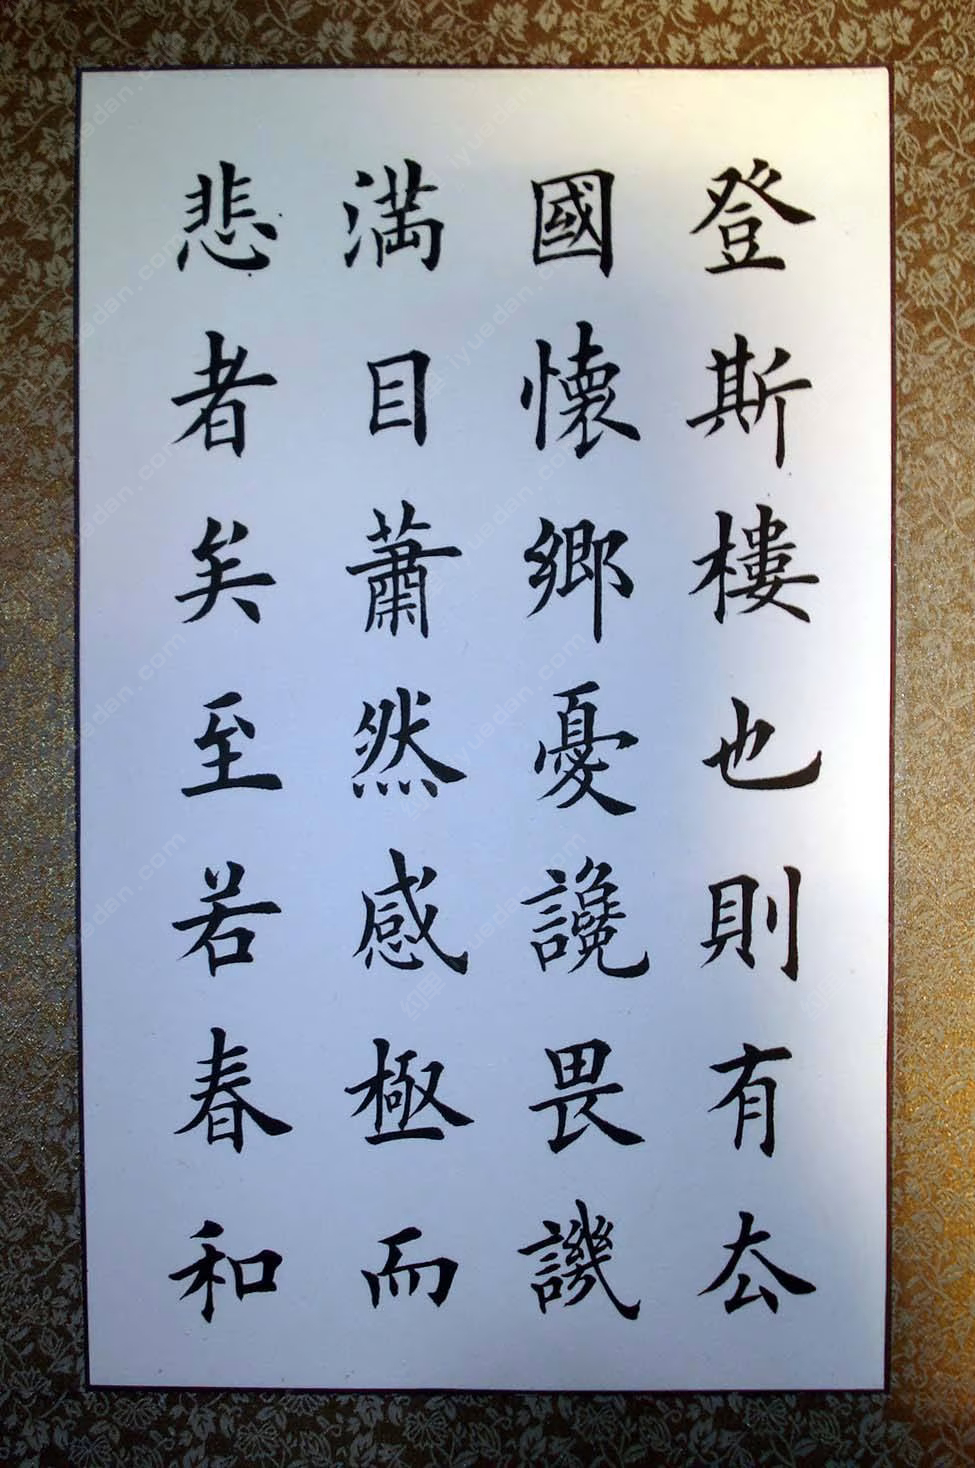 登斯樓也則有厺
國懷鄉憂讒畏譏
满目蕭然感極而
悲者矣至若春和